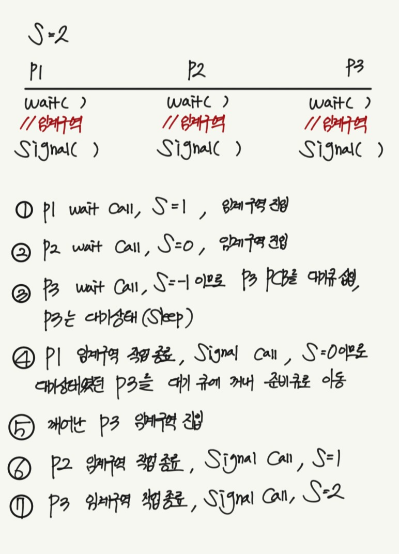 S=2
P1 P2 P3
wait( ) wait( ) wait( )
//임계구역 //임계구역 //임계구역
Signal( ) Signal( ) Signal( )
① P1 wait Call, S=1, 임계구역 진입
② P2 wait Call, S=0, 임계구역 진입
③ P3 wait Call, S=-1 이므로 P3 PCB를 대기큐 삽입,
P3는 대기상태 (Sleep)
④ P1 임계구역 작업 종료, Signal Call, S=0이므로
대기상태였던 P3을 대기 큐에 꺼내 준비큐로 이동
⑤ 깨어난 P3 임계구역 진입
⑥ P2 임계구역 작업 종료, Signal Call, S=1
⑦ P3 임계구역 작업종료, Signal Call, S=2